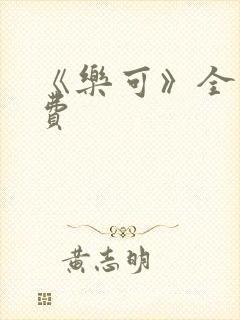 《樂可》全
費
黃志明